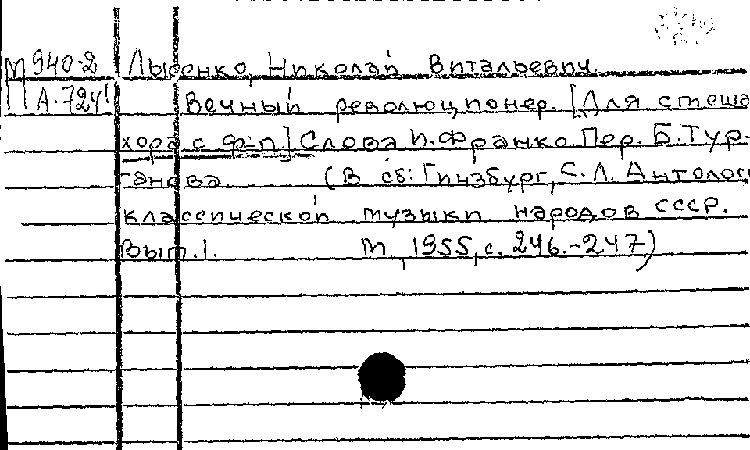 М 940-2 Лысенко, Николай Витальевич.
А-724! Вечный революционер. [Для смеша
хора с ф-п] Слова И. Франко Пер. Б. Тур-
ганова. (В сб: Гинзбург, С. Л. Антолог
классической музыки народов СССР.
Вып. 1. М, 1955, с. 246.-247)